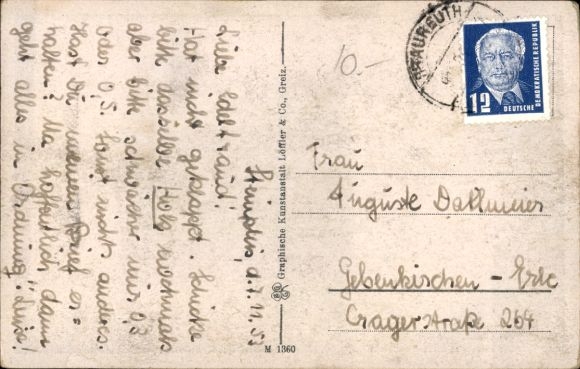 Steinpleis, d. 7. 11. 53
Liebe Edeltraud!
Hat nicht geklappt. Schicke
bitte dasselbe Holz nochmals
aber bitte schwächer nur 0,3
oder 0,5. Sonst nichts anderes.
Hast Du meinen Brief er-
halten? Na hoffentlich dann
geht alles in Ordnung! Luise!
Graphische Kunstanstalt Löffler & Co., Greiz.
M 1360
10.-
FRAUREUTH
12
DEUTSCHE
DEMOKRATISCHE REPUBLIK
Frau
Auguste Dallmeier
Gelsenkirchen - Erle
Crangerstraße 264